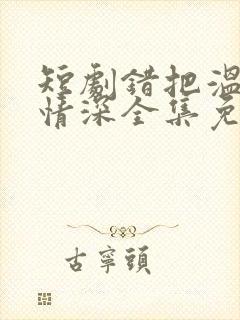 短劇錯把溫
情深全集免
古寧頭